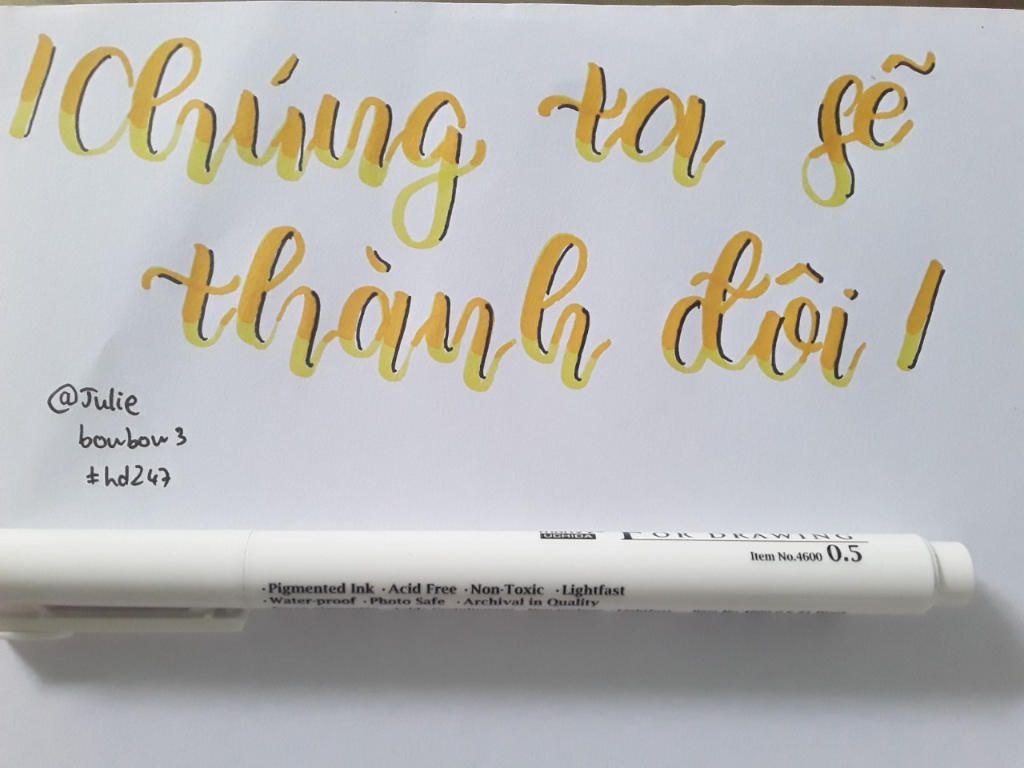 ! Chúng ta sẽ
thành đôi !
@Julie
bonbon3
#hd247
FOR DRAWING
Item No.4600 0.5
·Pigmented Ink ·Acid Free ·Non-Toxic ·Lightfast
·Water-proof ·Photo Safe ·Archival in Quality